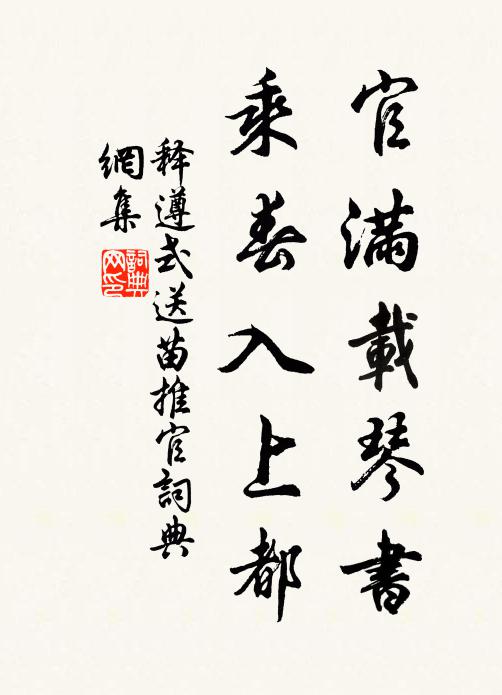 官滿載琴書
乘春入上都
释遵式送苗推官詞典
網集
詞典網印